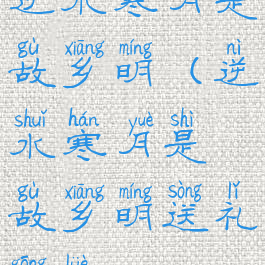 逆水寒月是
gù xiāng míng nì
故乡明(逆
shuǐ hán yuè shì
水寒月是
gù xiāng míng sòng lǐ
故乡明送礼
gōng lüè